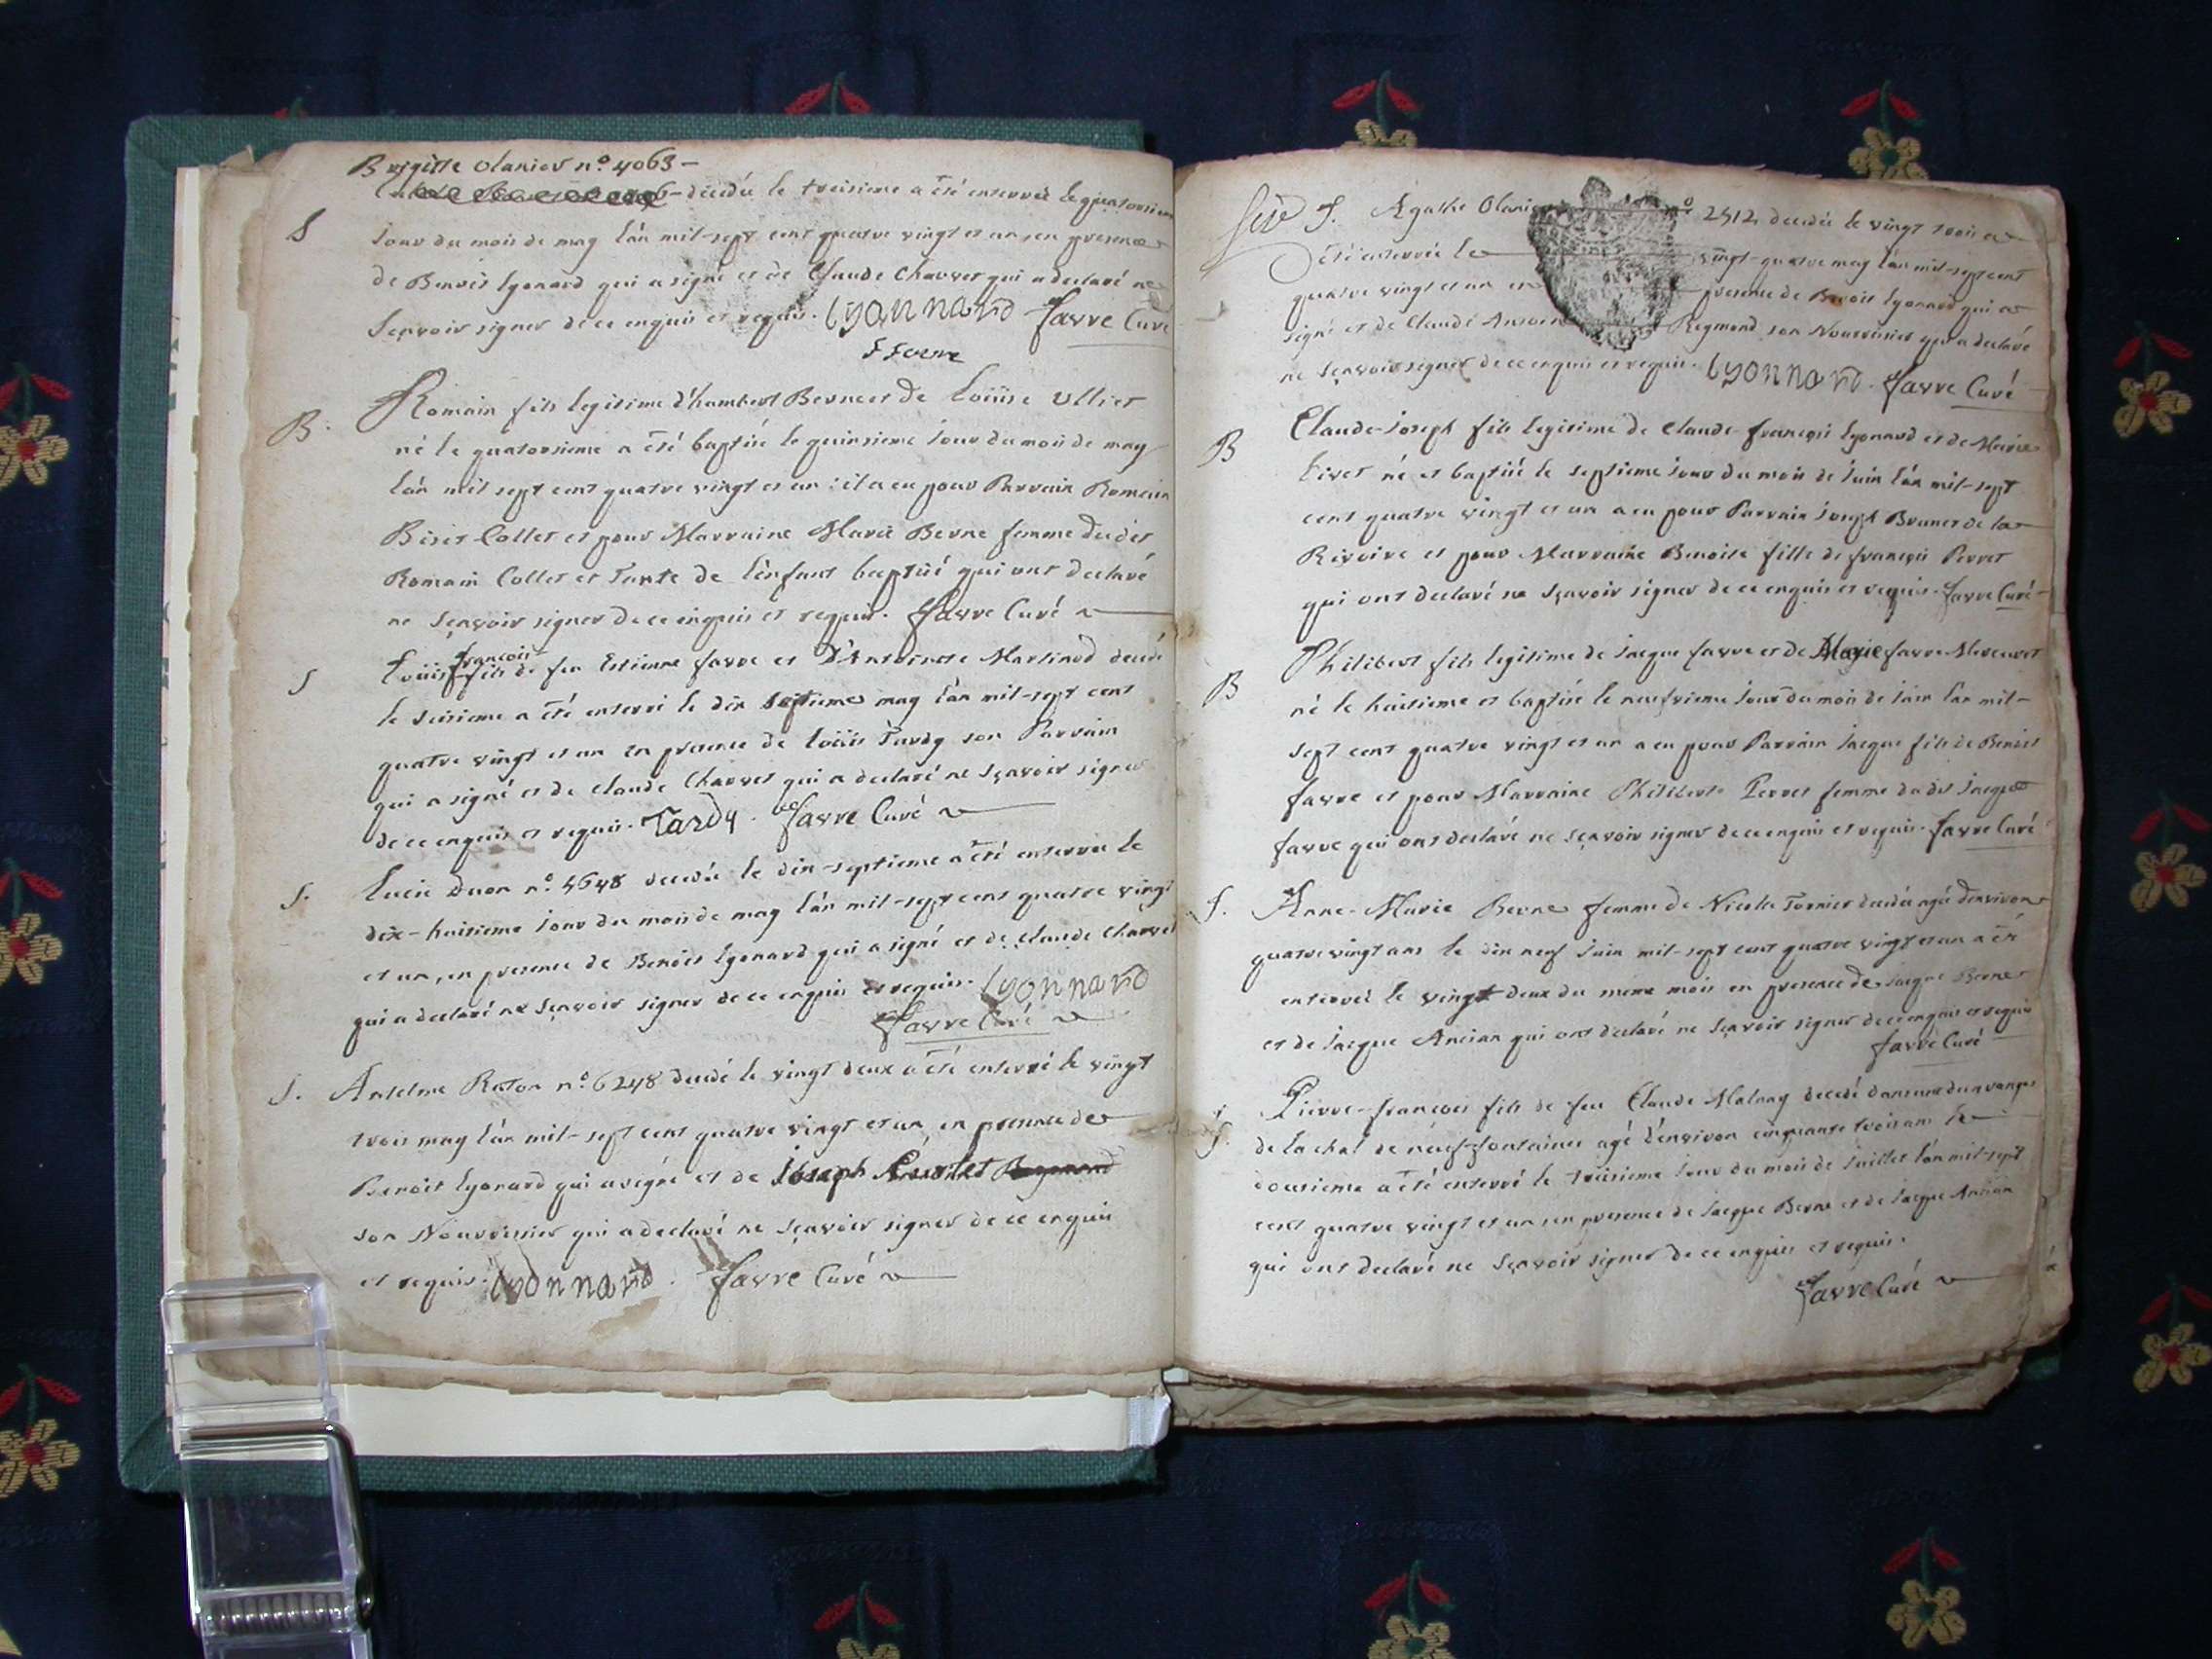 Brigitte Olanier n.º 4063 –
décédée le treisieme a été enterrée le quatorsieme
S jour du mois de may l'an mil-sept cent quatre vingt et un, en presence
de Benoit lyonard qui a signé et de Claude Chavvet qui a declaré ne
sçavoir signer de ce enquis et requis. lyonnard favre Curé
B. Romain fils legitime d'humbert Berne et de Loüise Ullier
né le quatorsieme a été baptisé le quinsieme jour du mois de may
l'an mil sept cent quatre vingt et un : il a eu pour Parrain Romain
Collet et pour Marraine Marie Berne femme dudit
Romain Collet et Tante de l'enfant baptisé qui ont declaré
ne sçavoir signer de ce enquis et requis. favre Curé
françois
S Loüis fils de feu Estienne favre et D'Antoinete Martinod décédé
le seisieme a été enterré le dix septieme may l'an mil-sept cent
quatre vingt et un en presence de Loüis Tardy son Parrain
qui a signé et de Claude Chavvet qui a declaré ne sçavoir signer
de ce enquis et requis. Tardy. favre Curé
S. Lucie Duon n.º 4648 décédée le dix-septieme a été enterrée le
dix-huitieme jour du mois de may l'an mil-sept cent quatre vingt
et un, en presence de Benoit lyonard qui a signé et de Claude Chavvet
qui a declaré ne sçavoir signer de ce enquis et requis. lyonnard
favre Curé
S. Anselme Raton n.º 6248 décédé le vingt deux a été enterré le vingt
trois may l'an mil-sept cent quatre vingt et un, en presence de
Benoit lyonard qui a signé et de Joseph
son Nourrissier qui a declaré ne sçavoir signer de ce enquis
et requis. lyonnard. favre Curé
S. Agathe Olanier n.º 2412 décédée le vingt trois a
été enterrée le vingt-quatre may l'an mil-sept cent
quatre vingt et un en presence de Benoit lyonard qui a
signé et de Claude Antoine Reymond son Nourrissier qui a declaré
ne sçavoir signer de ce enquis et requis. lyonnard. favre Curé
B Claude-Joseph fils legitime de Claude-françois lyonard et de Marie
Livet né et baptisé le septieme jour du mois de juin l'an mil-sept
cent quatre vingt et un a eu pour Parrain Joseph Brunet de la
Rivoire et pour Marraine Benoite fille de françois Perret
qui ont declaré ne sçavoir signer de ce enquis et requis. favre Curé
B Philibert fils legitime de Jacque favre et de Marie favre-
né le huitieme et baptisé le neufvieme jour du mois de juin l'an mil-
sept cent quatre vingt et un a eu pour Parrain Jacque fils de Benoit
favre et pour Marraine Philiberte Perret femme dudit Jacque
favre qui ont declaré ne sçavoir signer de ce enquis et requis. favre Curé
S. Anne-Marie Berne femme de Nicolas Tornier décédée agée d'environ
quatre vingt ans le dix neuf juin mil-sept cent quatre vingt et un a été
enterrée le vingt deux du meme mois en presence de Jacque Berne
et de Jacque Ancian qui ont declaré ne sçavoir signer de ce enquis et requis
favre Curé
S. Pierre-françois fils de feu Claude Malnay decédé dans une des granges
de la chal de neuf-fontaines agé d'environ cinquante trois ans le
dousieme a été enterré le treisieme jour du mois de juillet l'an mil-sept
cent quatre vingt et un en presence de Jacque Berne et de Jacque Ancian
qui ont declaré ne sçavoir signer de ce enquis et requis.
favre Curé